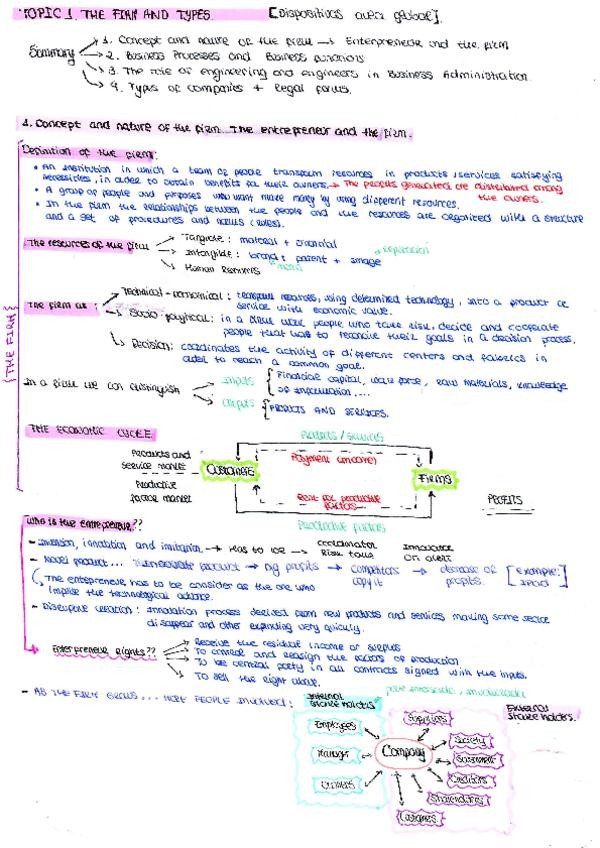 TOPIC 1. THE FIRM AND TYPES. [Dispositivas aula global]
Summary
1. Concept and nature of the firm → Enterpreneur and the firm
2. Business Processes and Business functions
3. The role of engineering and engineers in Business Administration
4. Types of companies + legal forms.
1. Concept and nature of the firm. The entrepreneur and the firm.
{THE FIRM}
Definition of the firm:
• An institution in which a team of people transform resources in products/services satisfying
necessities, in order to obtain benefits for their owners. → The profits generated are distributed among
the owners.
• A group of people and purposes who want make money by using different resources.
• In the firm the relationships between the people and the resources are organized with a structure
and a set of procedures and norms (rules).
The resources of the firm
Tangible: material + financial
Intangible: brand, patent + image
Human Resources
The firm as:
Technical-economical: transform resources, using determined technology, into a product or
service with economic value.
Socio political: in a firm work people who take risk, decide and cooperate
people that has to reconcile their goals in a decision process.
Decision: coordinates the activity of different centers and in
order to reach a common goal.
In a firm we can distinguish
Inputs { Financial capital, work force, raw materials, knowledge
of information....
Outputs { PRODUCTS AND SERVICES.
THE ECONOMIC CYCLE
Products / services
Products and
service market
Customers
Payment (income)
Firms
Productive
factor market
Rent for productive
factors
PROFITS
Productive factors
Who is the entrepreneur??
- Invension, innovation and imitation → Has to be → coordinator
Risk taker
Innovator
on alert
- Novel product... → Innovate product → Big profits → competitors
copy it → decrease of
profits. [Example:
IPAD]
The entrepreneur has to be consider as the one who
impulse the technological advance.
- Disruptive creation: Innovation process derived from new products and services making some sector
disappear and other expanding very quickly.
Enterpreneur Rights??
Receive the residual income or surplus
To control and reassign the factors of production
To be central party in all contracts signed with the inputs.
To sell the right above.
- AS THE FIRM GROWS... MORE PEOPLE involved:
Internal
stakeholders
External
stakeholders.
Employees
Manager
Owners
Company
Suppliers
Society
Government
Creditors
Shareholders
Customers